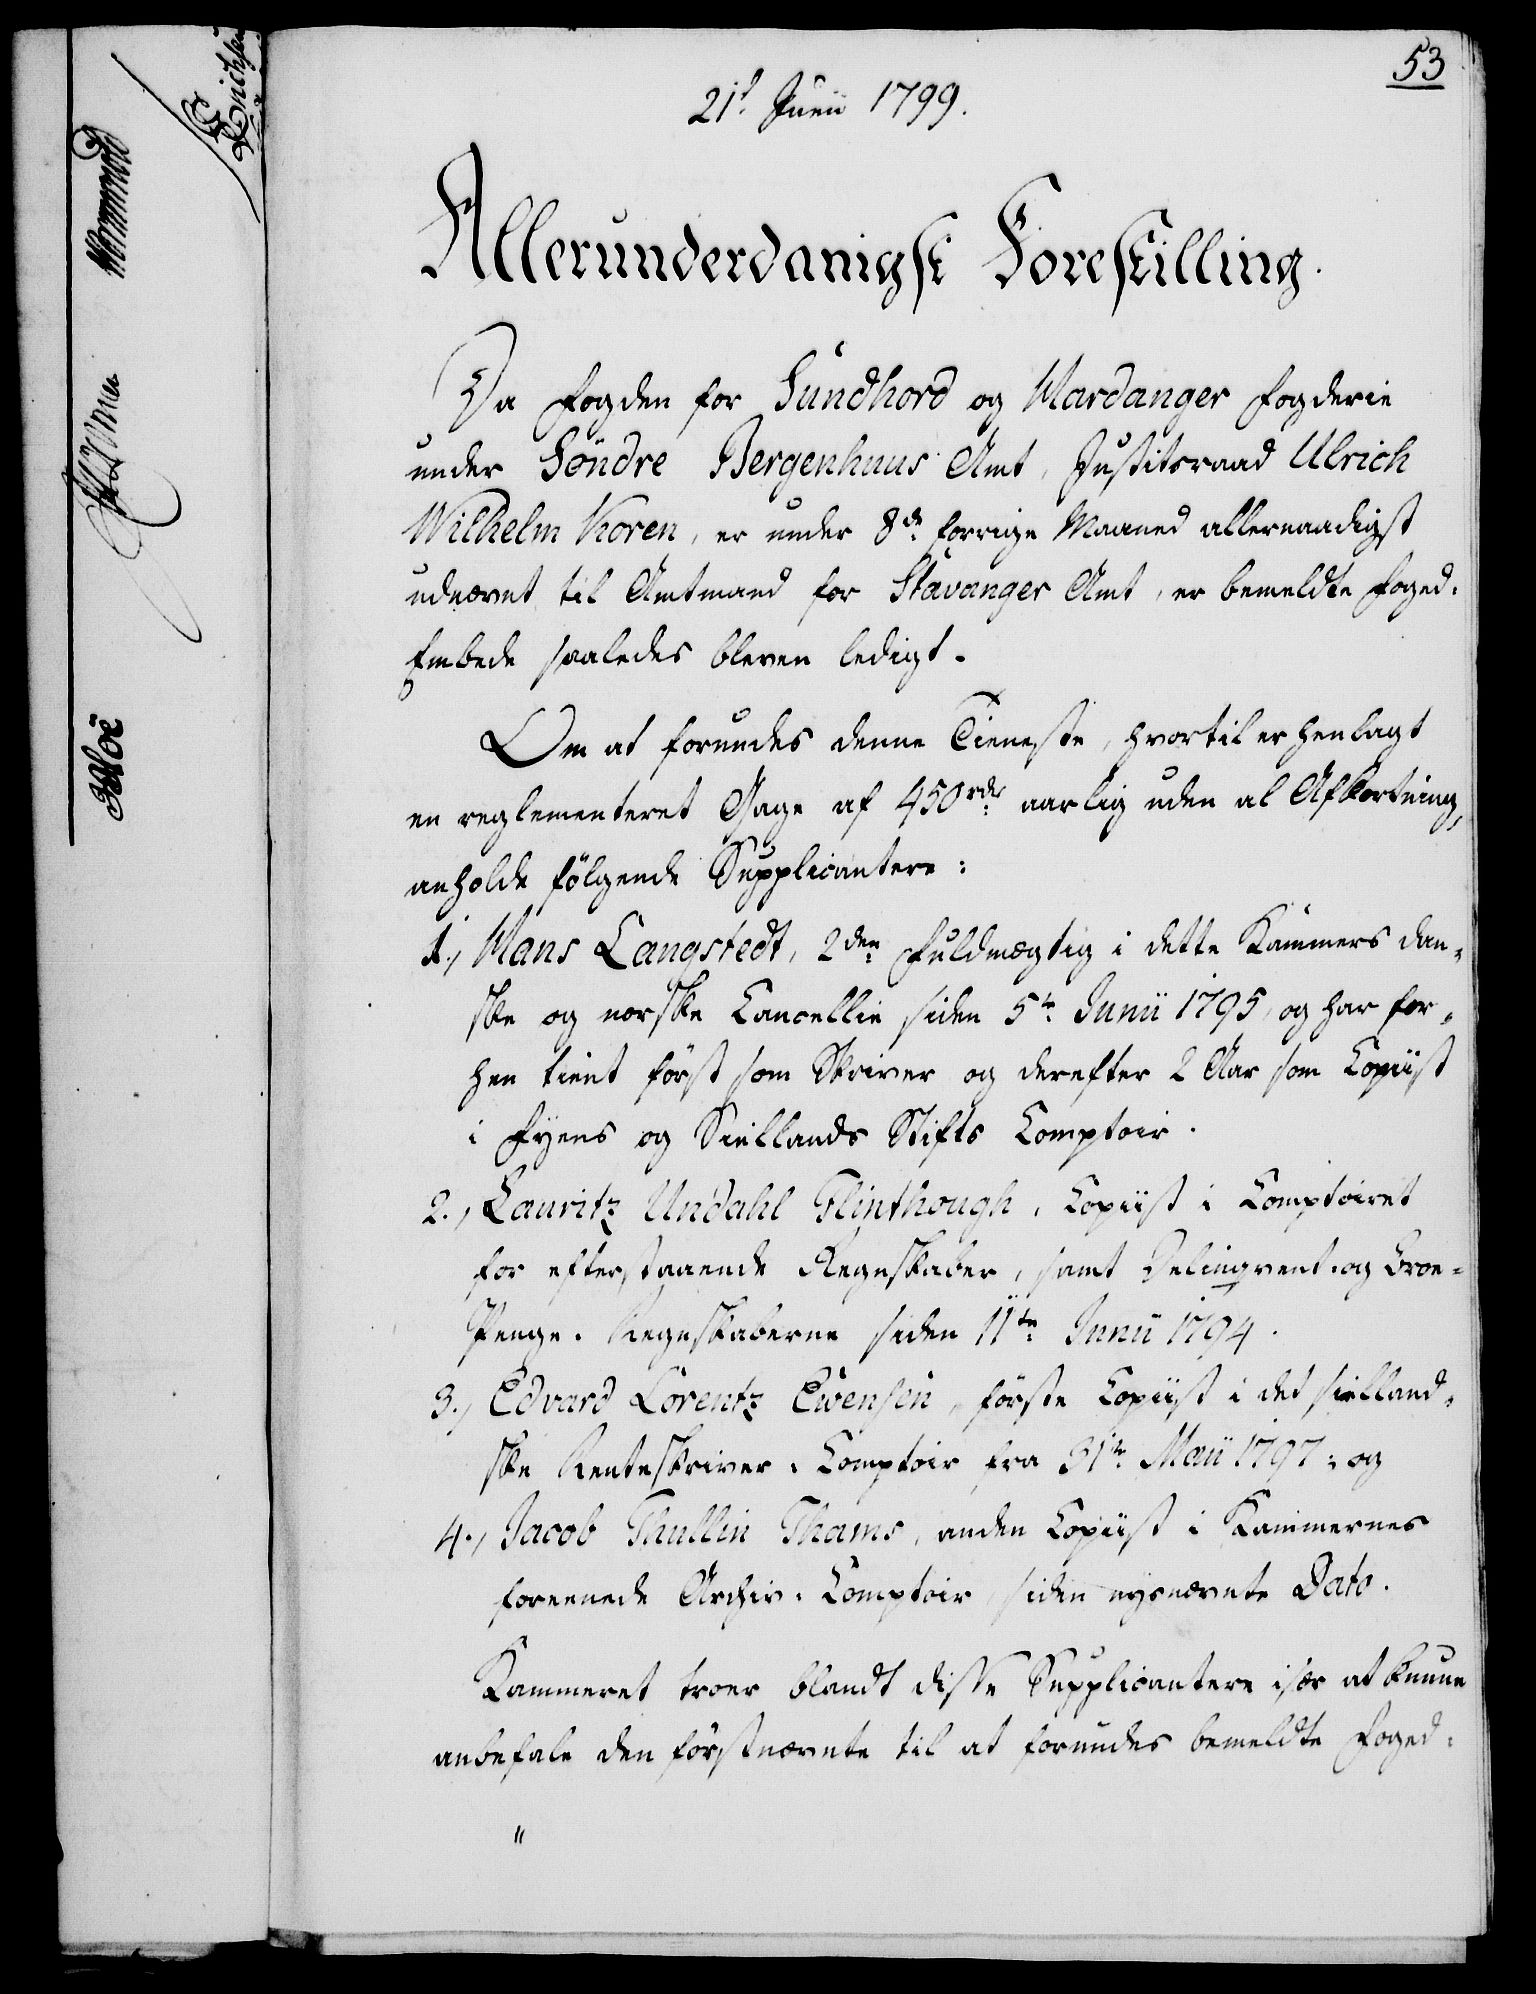 53
21d Junii 1799.
Allerunderdanigst Forestilling.
Da Fogden for Sundhord og Hardanger Fogderie
under Söndre Bergenhuus Amt, Justitsraad Ulrich
Wilhelm Koren, er under 8de forrige Maaned allernaadigst
udnævnt til Amtmand for Stavanger Amt, er bemeldte Foged-
Embede saaledes bleven ledigt.
Om at forundes denne Tieneste, hvortil er henlagt
en reglementeret Gage af 450 rdr aarlig uden al Afkortning,
anholde fölgende Supplicantere:
1., Hans Langstedt, 2den Fuldmægtig i dette Kammers dan-
ske og norske Cancellie siden 5te Junii 1795, og har for-
hen tient först som Skriver og derefter 2 Aar som Copiist
i Fyens og Siellands Stifts Comptoir.
2., Lauritz Undahl Flinthough, Copiist i Comptoiret
for efterstaaende Regnskaber, samt Delinqvent- og Broe-
Penge-Regnskaberne siden 11te Junii 1794.
3., Edvard Lorentz Evensen, förste Copiist i det sielland-
ske Renteskriver-Comptoir fra 31te Maii 1797; og
4., Jacob Thullin Thams, anden Copiist i Kammernes
foreenede Archiv-Comptoir, siden nysnævnte Dato.
Kammeret troer blandt disse Supplicantere især at kunne
anbefale den förstnævnte til at forundes bemeldte Foged-
"